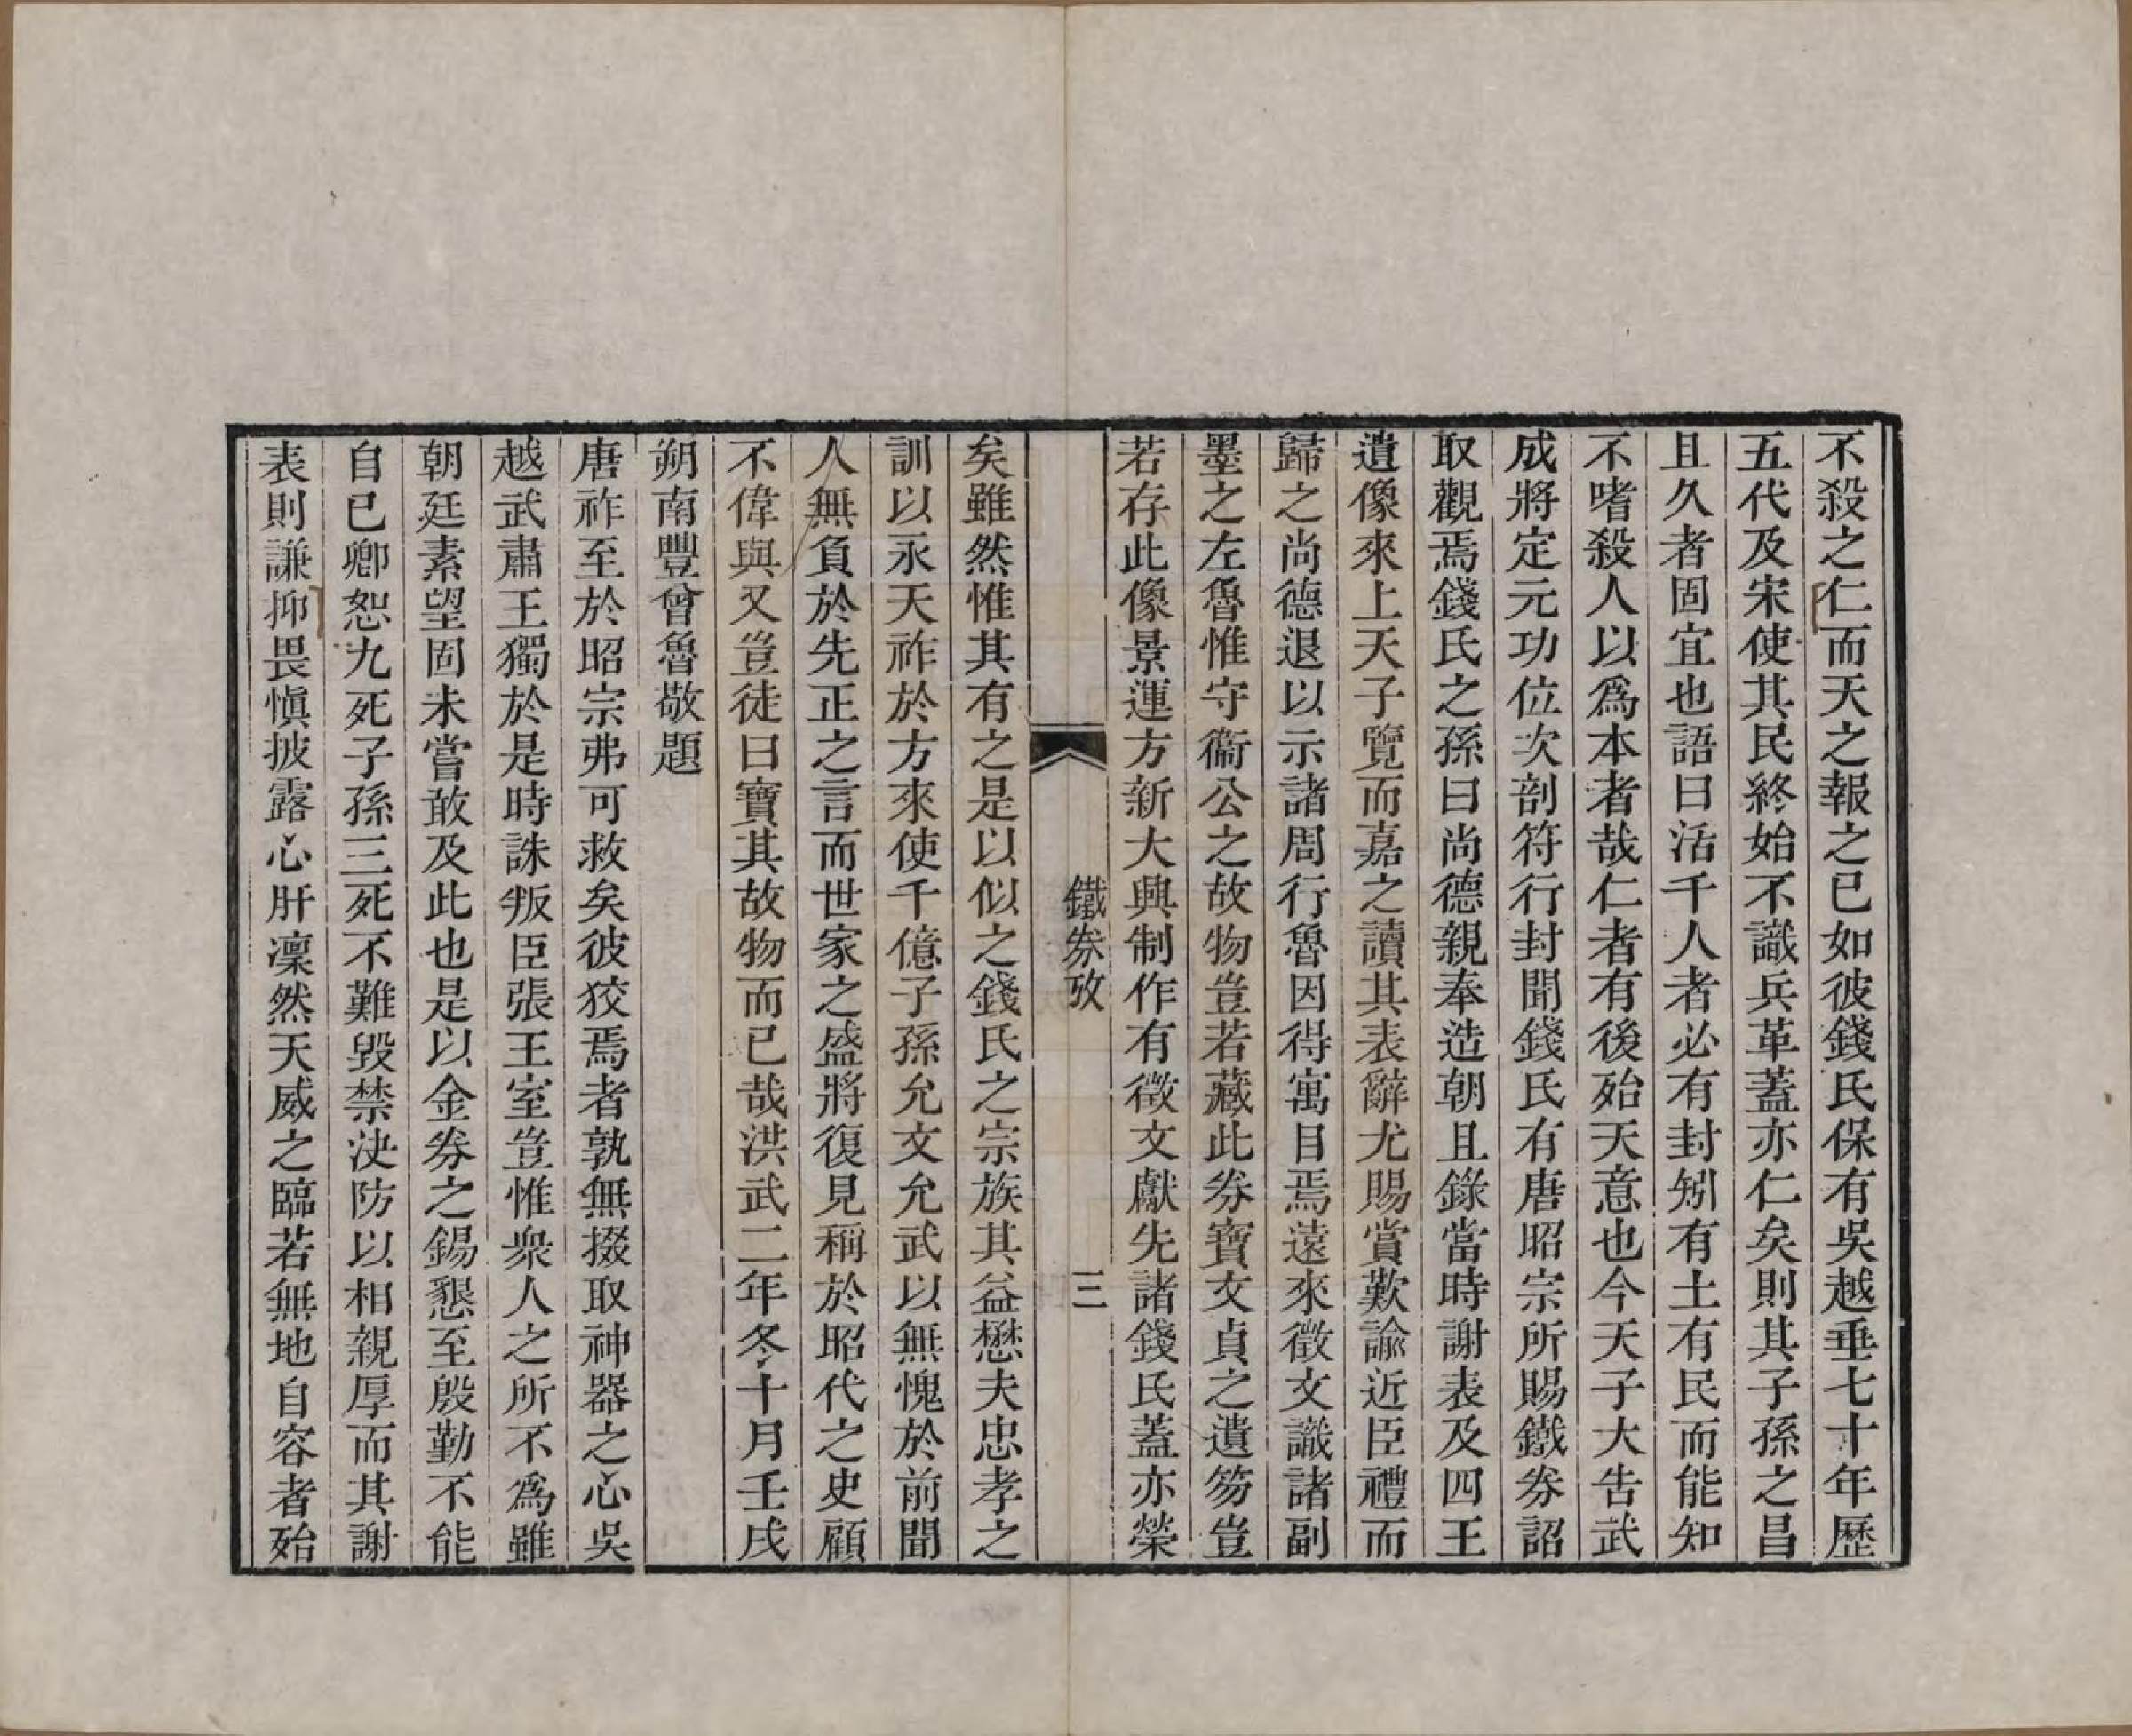 不殺之仁而天之報之已如彼錢氏保有吳越垂七十年歷
五代及宋使其民終始不識兵革蓋亦仁矣則其子孫之昌
且久者固宜也語曰活千人者必有封矧有土有民而能知
不嗜殺人以爲本者哉仁者有後殆天意也今天子大告武
成將定元功位次剖符行封聞錢氏有唐昭宗所賜鐵券詔
取觀焉錢氏之孫曰尚德親奉造朝且錄當時謝表及四王
遺像來上天子覽而嘉之讀其表辭尤賜賞歎諭近臣禮而
歸之尚德退以示諸周行魯因得寓目焉遠來徵文識諸副
墨之左魯惟守衞公之故物豈若藏此券寶文貞之遺笏豈
若存此像景運方新大興制作有徵文獻先諸錢氏蓋亦榮
鐵券攷
三
矣雖然惟其有之是以似之錢氏之宗族其益懋夫忠孝之
訓以永天祚於方來使千億子孫允文允武以無愧於前聞
人無負於先正之言而世家之盛將復見稱於昭代之史顧
不偉與又豈徒曰寶其故物而已哉洪武二年冬十月壬戌
朔南豐曾魯敬題
唐祚至於昭宗弗可救矣彼狡焉者孰無掇取神器之心吳
越武肅王獨於是時誅叛臣張王室豈惟衆人之所不爲雖
朝廷素望固未嘗敢及此也是以金券之錫懇至殷勤不能
自已卿恕九死子孫三死不難毀禁決防以相親厚而其謝
表則謙抑畏愼披露心肝凜然天威之臨若無地自容者殆